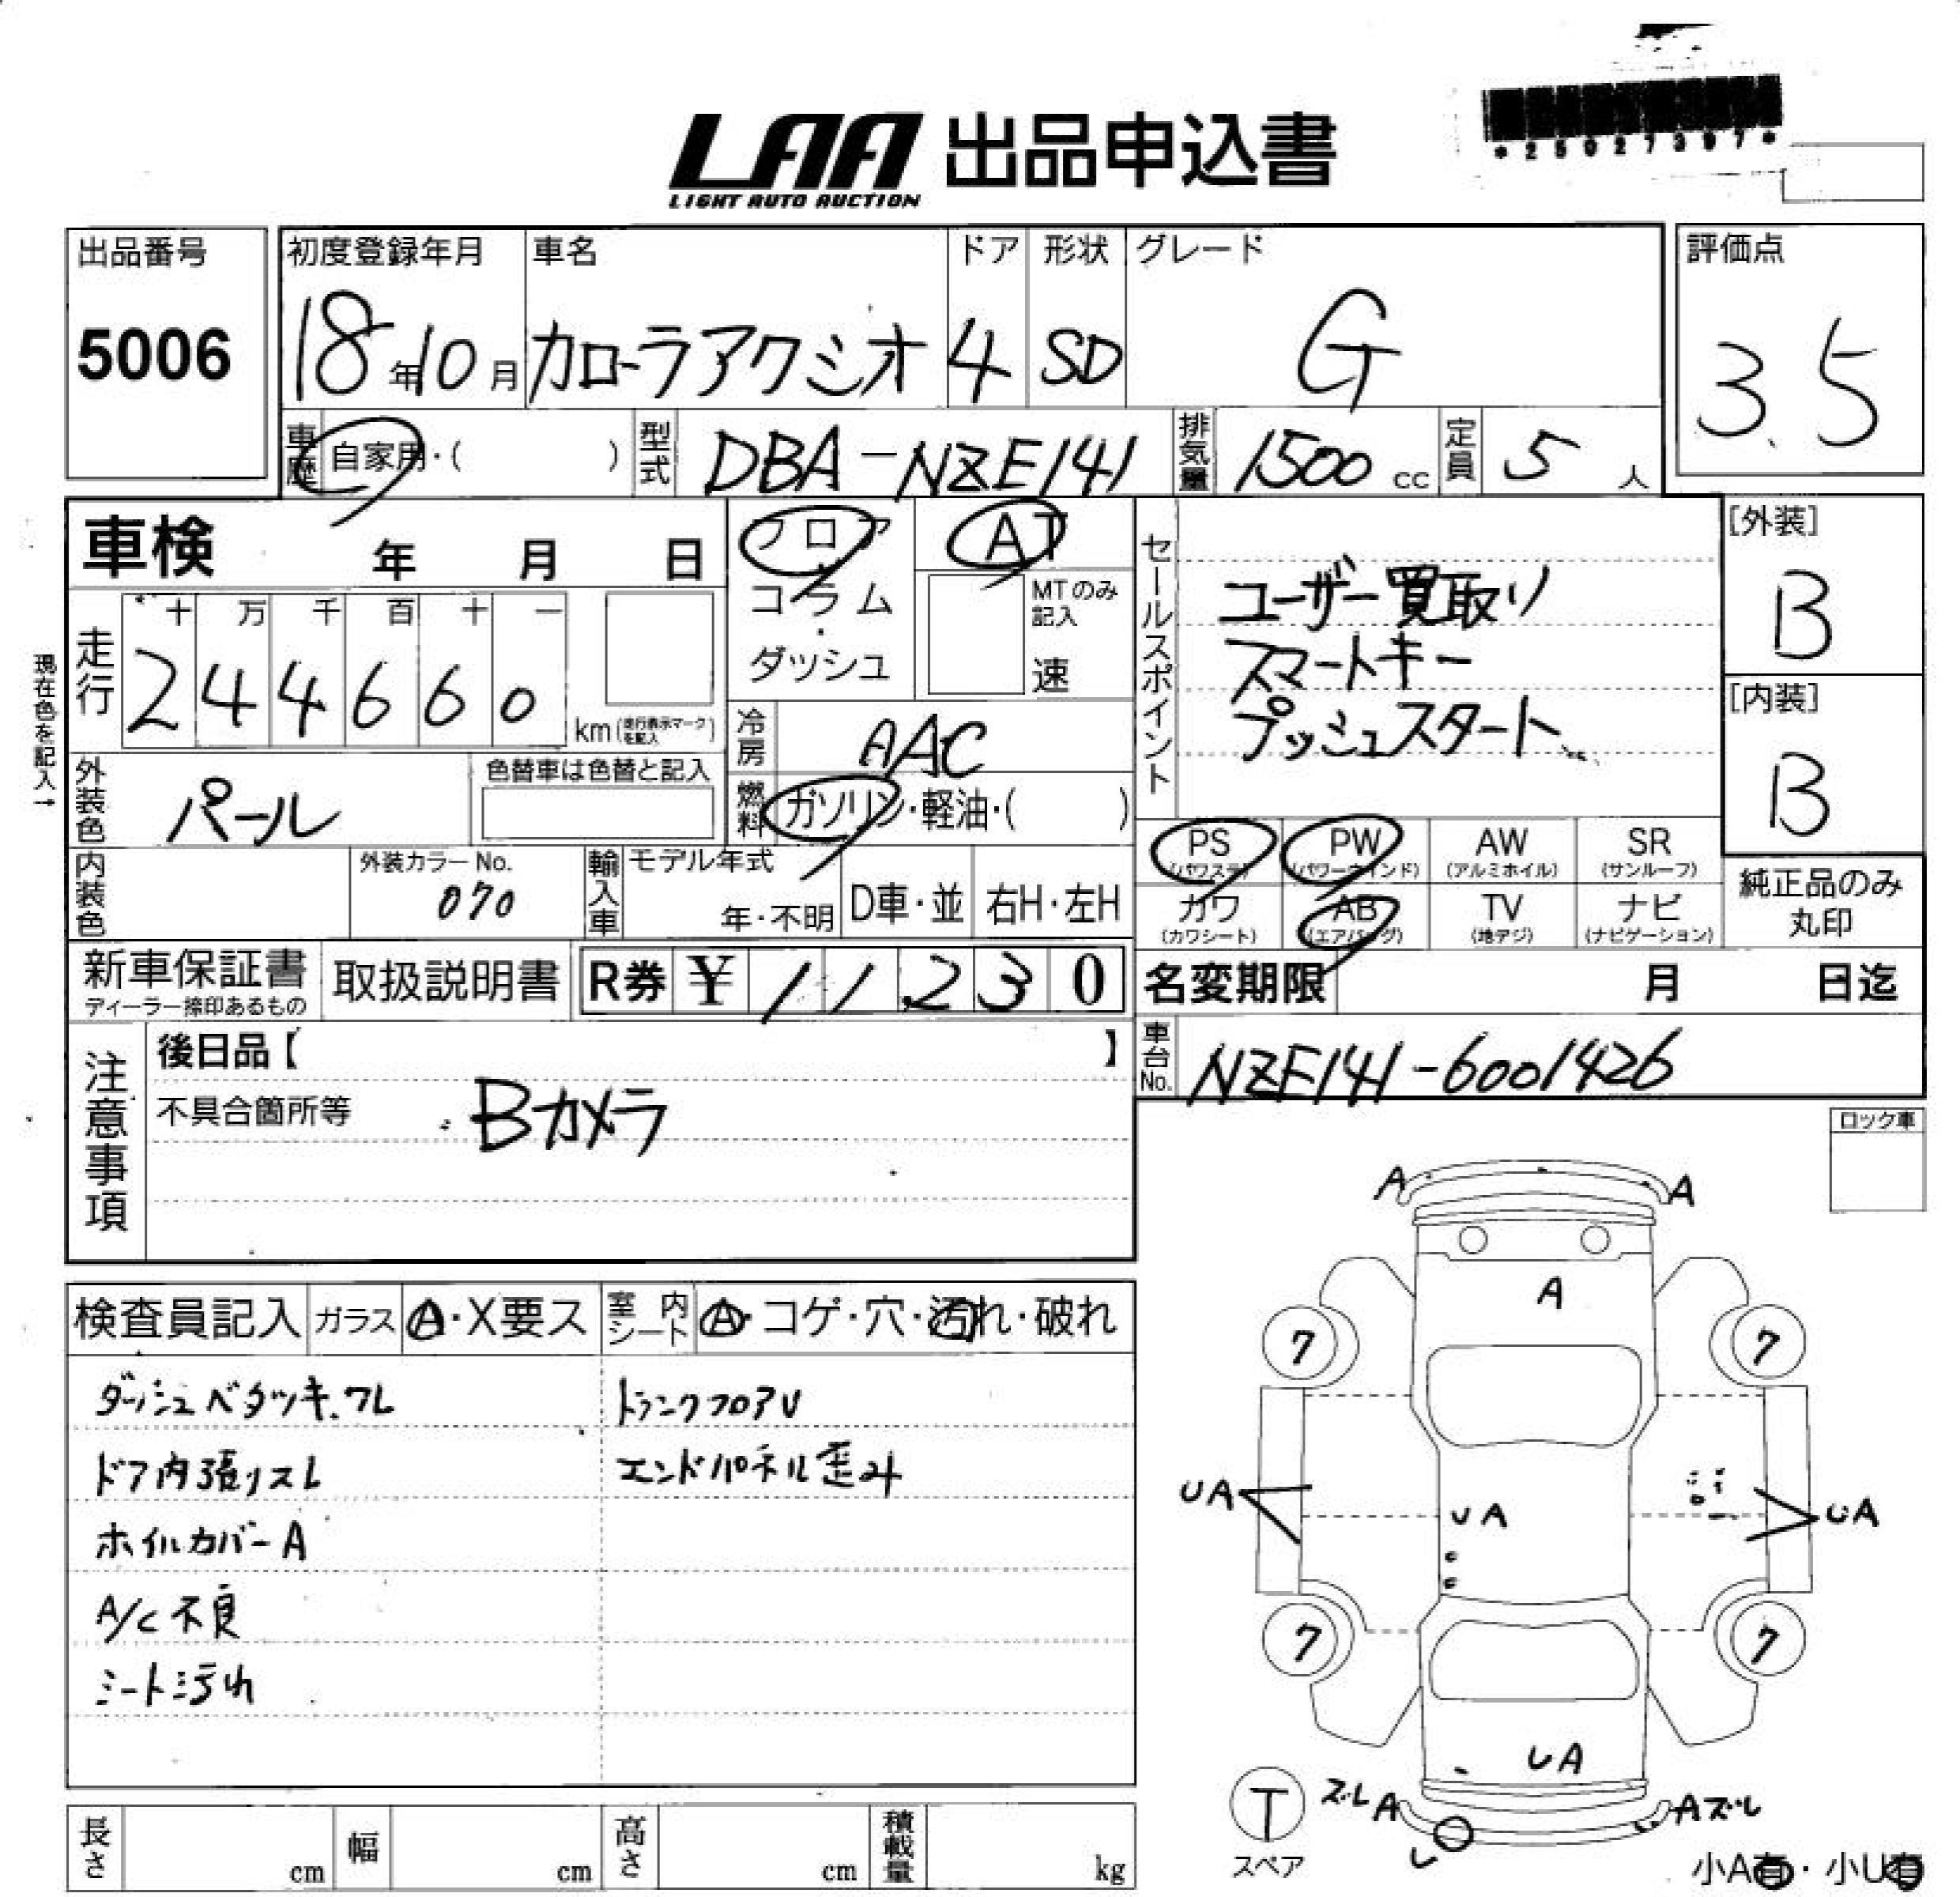 LAA 出品申込書
LIGHT AUTO AUCTION
*25027397*
出品番号
5006
初度登録年月
18年10月
車名
カローラアクシオ
ドア
4
形状
SD
グレード
G
評価点
3.5
車歴
自家用・( )
型式
DBA-NZE141
排気量
1500 cc
定員
5 人
車検 年 月 日
フロア
コラム
・
ダッシュ
AT
MTのみ
記入
速
セールスポイント
ユーザー買取り
スマートキー
プッシュスタート
[外装]
B
[内装]
B
現在色を記入→
走行
十 万 千 百 十 一
2 4 4 6 6 0
km (走行表示マークを記入)
冷房
AAC
外装色
パール
色替車は色替と記入
燃料
ガソリン・軽油・( )
PS
(パワステ)
PW
(パワーウインド)
AW
(アルミホイル)
SR
(サンルーフ)
カワ
(カワシート)
AB
(エアバッグ)
TV
(地デジ)
ナビ
(ナビゲーション)
純正品のみ
丸印
内装色
外装カラーNo.
070
輸入車
モデル年式
年・不明
D車・並
右H・左H
新車保証書
ディーラー捺印あるもの
取扱説明書
R券 ¥ 11,230
名変期限 月 日迄
車台No.
NZE141-6001426
注意事項
後日品【 】
不具合箇所等
Bカメラ
ロック車
検査員記入
ガラス
A・X要ス
室内
シート
A・コゲ・穴・汚れ・破れ
ダッシュベタツキ.ワレ
ドア内張リスレ
ホイルカバーA
A/C不良
シート汚れ
トランクフロアU
エンドパネル歪み
A A
A
7 7
UA UA UA
7 7
UA
T
スペア
ズレA Aズレ
小A有・小U有
長さ cm
幅 cm
高さ cm
積載量 kg